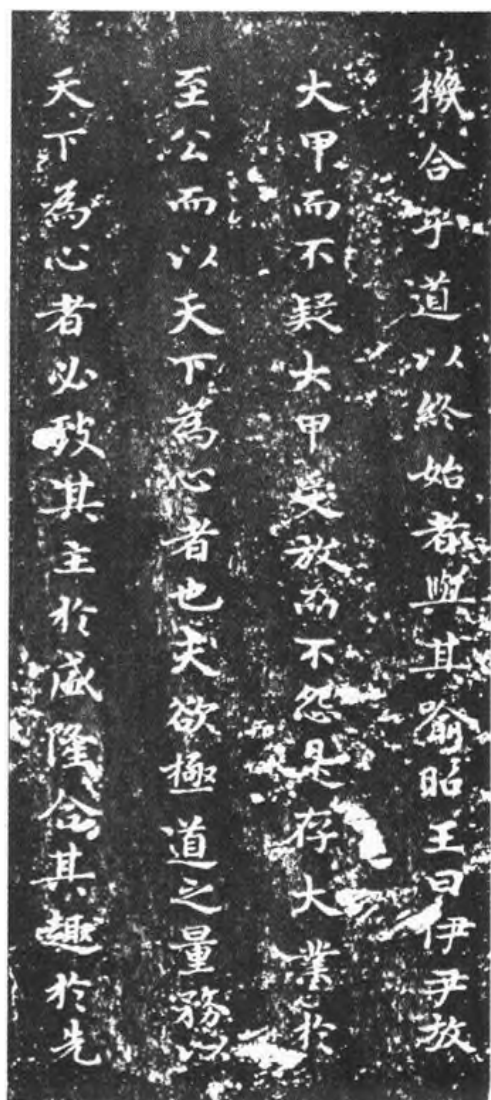 機合乎道以終始者與其喻昭王曰伊尹放
大甲而不疑大甲受放而不怨是存大業於
至公而以天下為心者也夫欲極道之量務以
天下為心者必致其主於盛隆合其趣於先